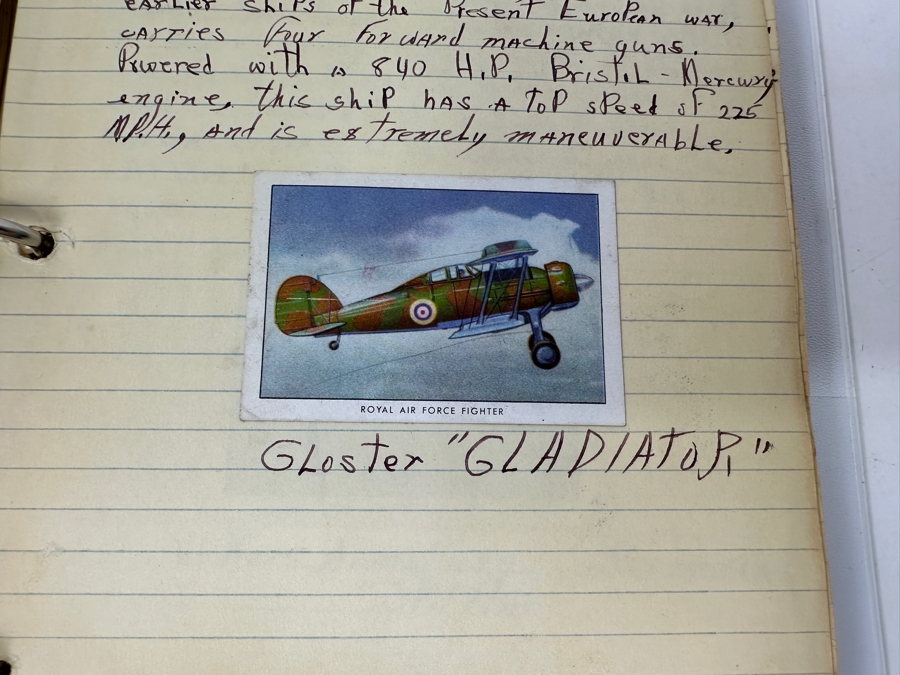 earlier ships of the Present European war,
carries four forward machine guns.
Powered with a 840 H.P. Bristol-Mercury
engine, this ship has a top speed of 225
M.P.H., and is extremely maneuverable.
ROYAL AIR FORCE FIGHTER
Gloster "GLADIATOR,"